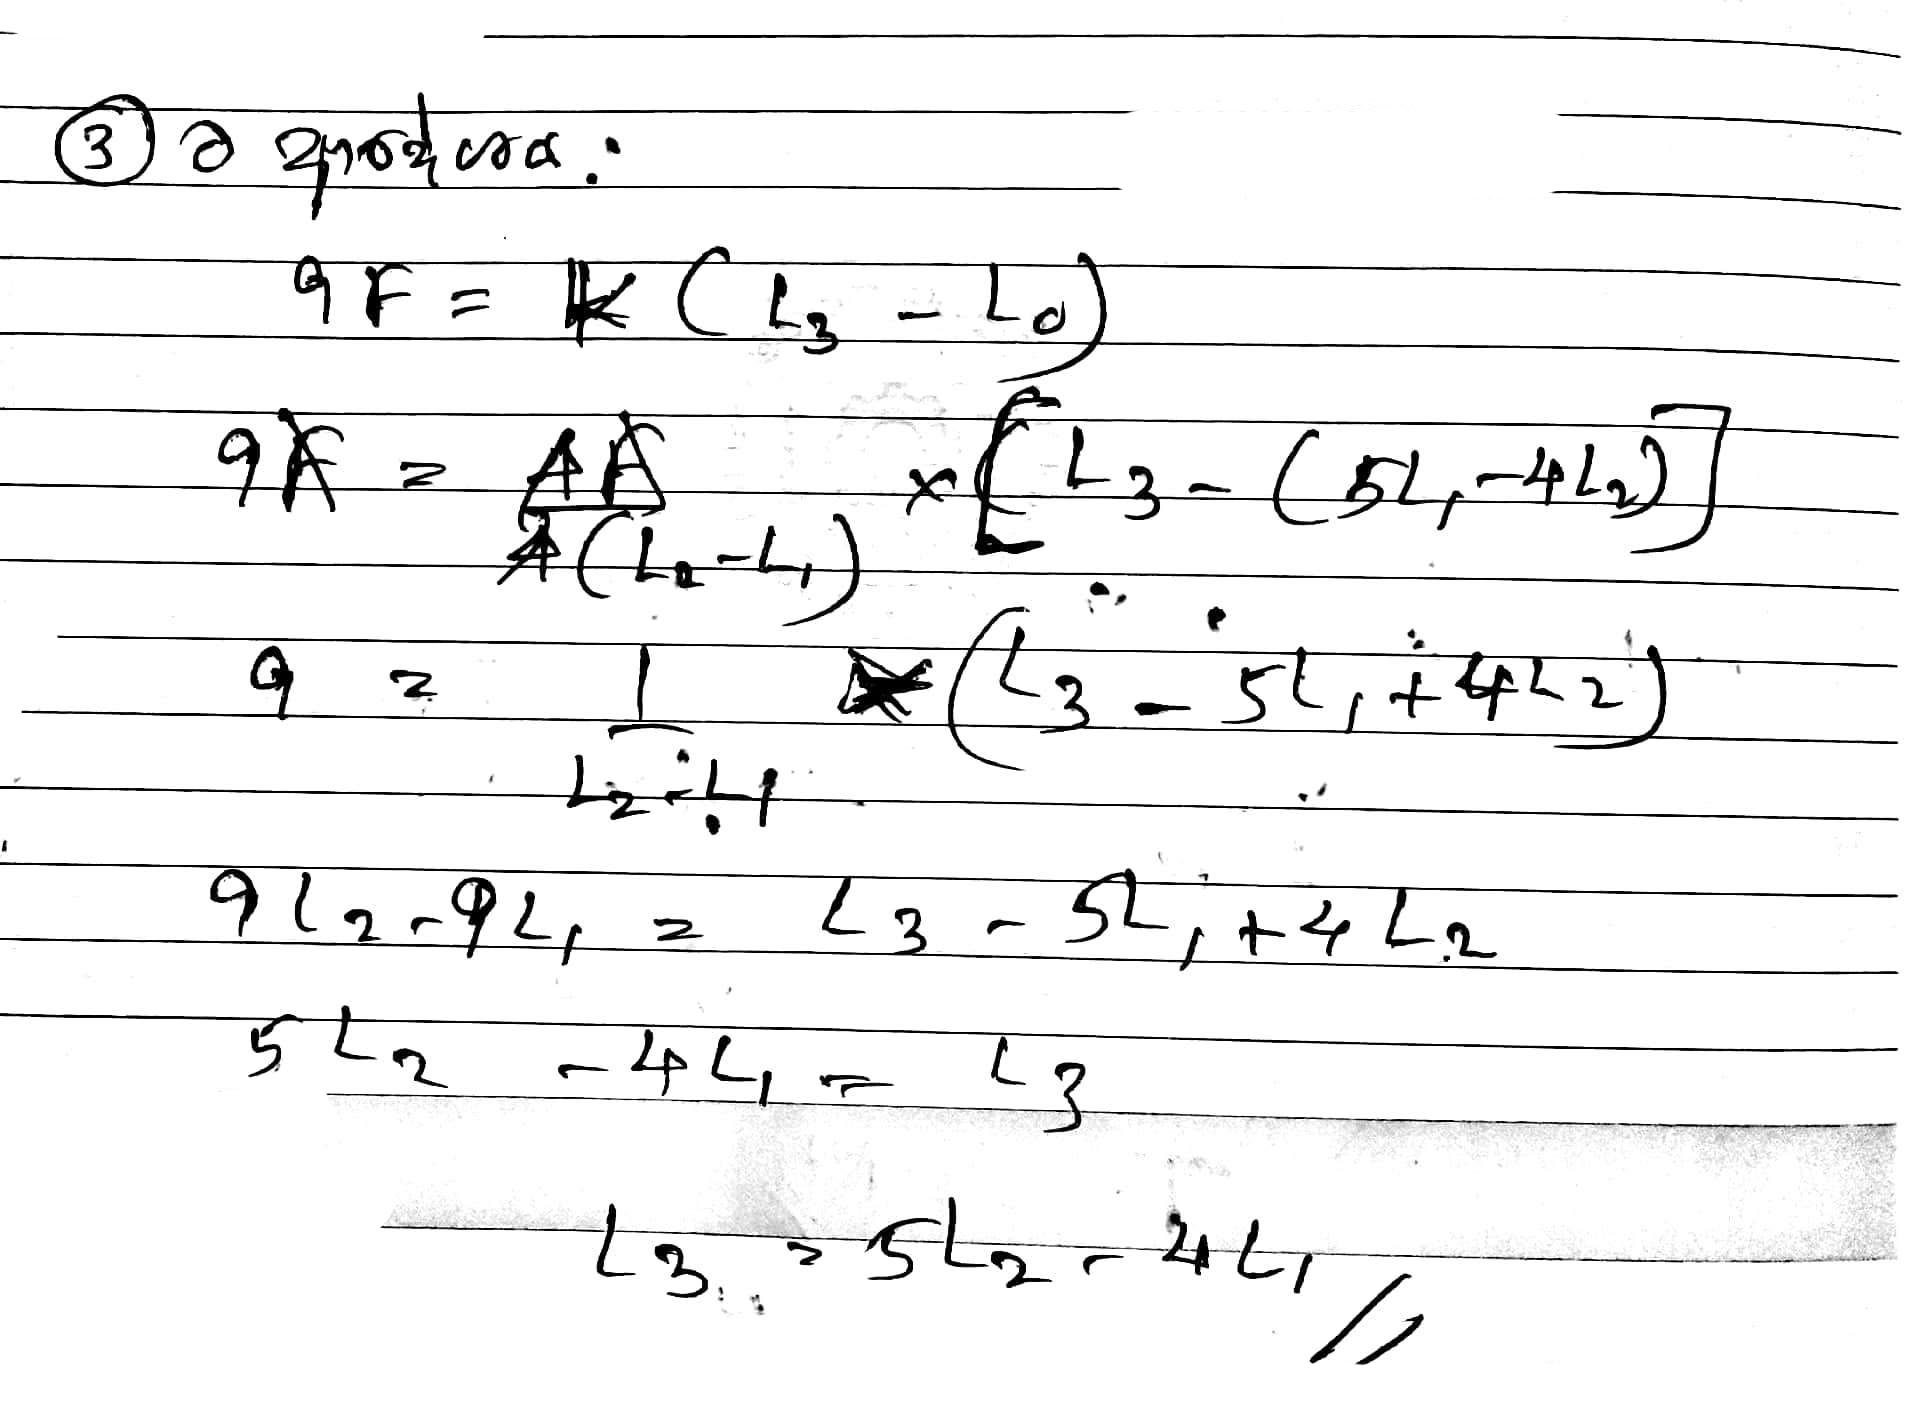 ③ ට
9F = k (L₃ - L₀)
9F = 4F / 4(L₂ - L₁) × [L₃ - (5L₁ - 4L₂)]
9 = 1 / L₂ - L₁ (L₃ - 5L₁ + 4L₂)
9L₂ - 9L₁ = L₃ - 5L₁ + 4L₂
5L₂ - 4L₁ = L₃
L₃ = 5L₂ - 4L₁ //